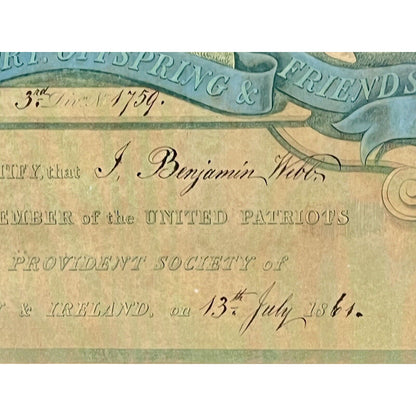 RT. OFFSPRING & FRIENDS
3rd Div. No. 1759.
TIFY, that J. Benjamin Webb
EMBER of the UNITED PATRIOTS
PROVIDENT SOCIETY of
& IRELAND, on 13th July 1861.